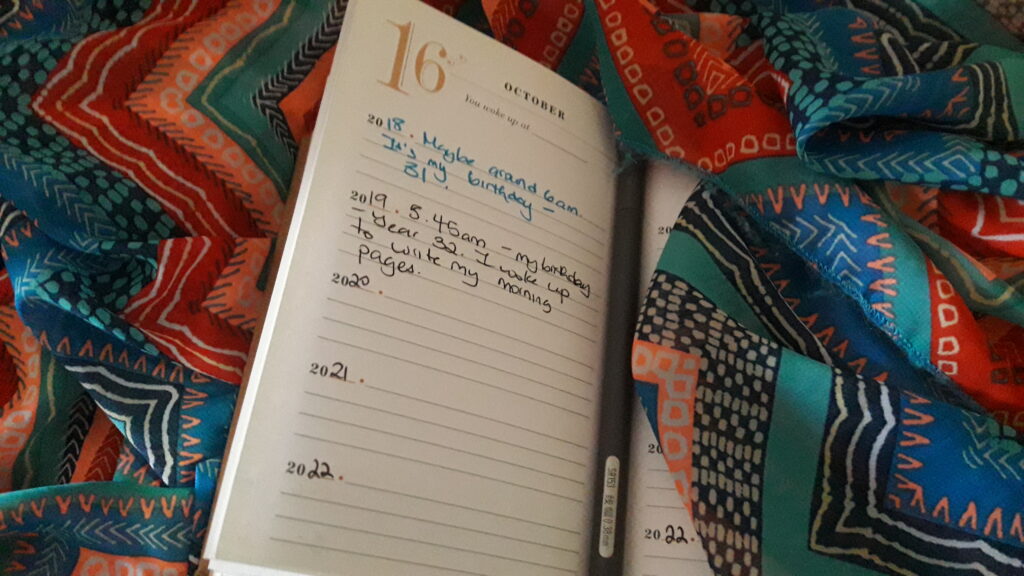 16
OCTOBER
You woke up at
2018. Maybe around 6am.
- It's my birthday -
31.
2019. 5.45am - my birthday
- Year 32. I woke up
to write my morning
pages.
2020.
2021.
2022.
20
20
2022.